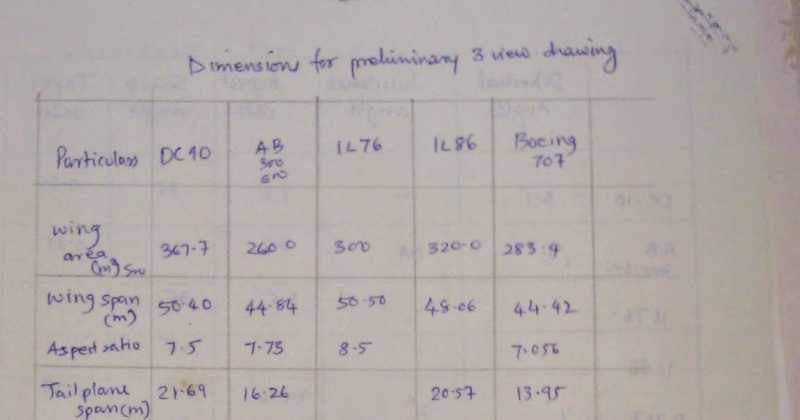 Dimensions for preliminary 3 view drawing
Particulars DC10 AB 300 600 IL76 IL86 Boeing 707
wing area (m²) Sw 367.7 260.0 300 320.0 283.4
Wing span (m) 50.40 44.84 50.50 48.06 44.42
Aspect ratio 7.5 7.75 8.5 7.056
Tail plane span (m) 21.69 16.26 20.57 13.95